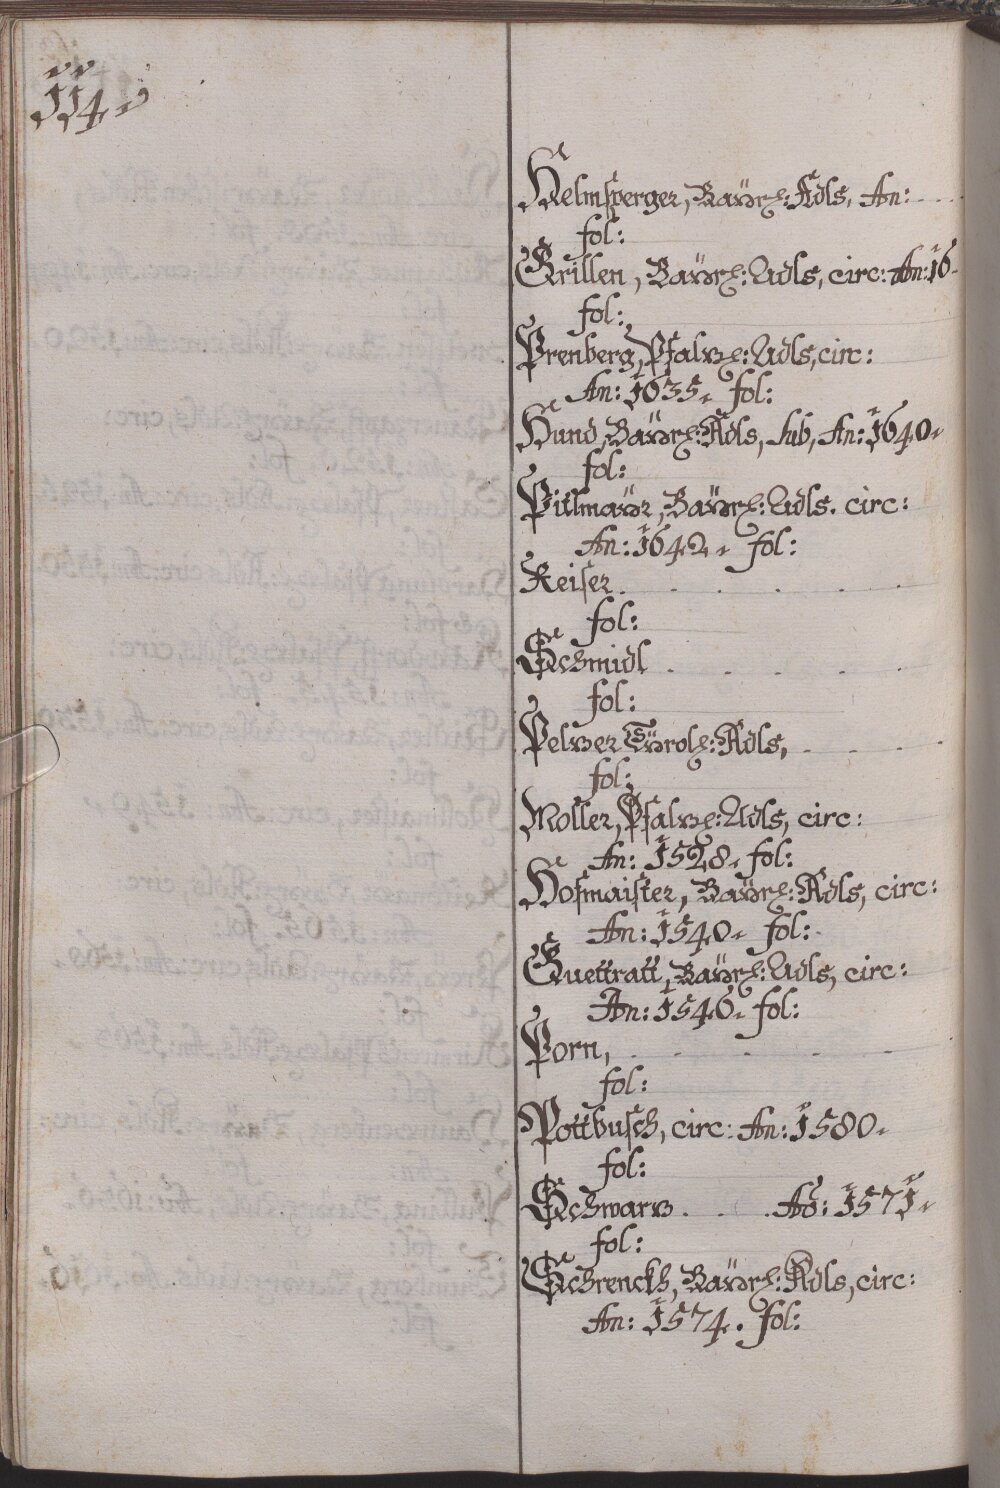 114.
Helmsperger, Bayrl: Adls, An: . . .
fol:
Grillen, Bayrl: Adls, circ: An: 16.
fol:
Prenberg, Pfalzl: Adls, circ:
An: 1635. fol:
Hund, Bayrl: Adls, sub, An: 1640.
fol:
Pittmayr, Bayrl: Adls. circ:
An: 1642. fol:
Reiser . . . . . .
fol:
Schmidl . . . . .
fol:
Pelzer Tyrol: Adls, . . . .
fol:
Moller, Pfalzl: Adls, circ:
An: 1528. fol:
Hofmaister, Bayrl: Adls, circ:
An: 1540. fol:
Quettratt, Bayrl: Adls, circ:
An: 1546. fol:
Porn, . . . . .
fol:
Pottbusch, circ: An: 1580.
fol:
Schwarz . . . Ao: 1571.
fol:
Schrenckh, Bayrl: Adls, circ:
An: 1574. fol: